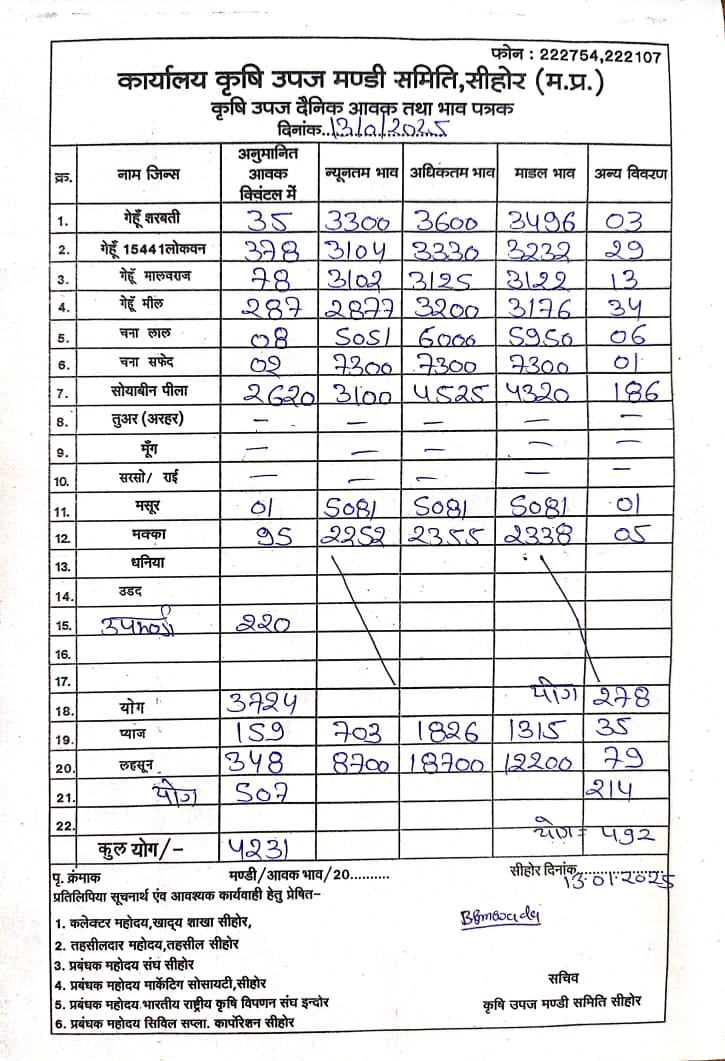 फोन : 222754,222107
कार्यालय कृषि उपज मण्डी समिति,सीहोर (म.प्र.)
कृषि उपज दैनिक आवक तथा भाव पत्रक
दिनांक..13/01/2025
क्र. नाम जिन्स अनुमानित आवक क्विंटल में न्यूनतम भाव अधिकतम भाव माडल भाव अन्य विवरण
1. गेहूँ शरबती 35 3300 3600 3496 03
2. गेहूँ 15441लोकवन 378 3104 3330 3232 29
3. गेहूँ मालवराज 78 3102 3125 3122 13
4. गेहूँ मील 287 2877 3200 3176 34
5. चना लाल 08 5051 6000 5950 06
6. चना सफेद 02 7300 7300 7300 01
7. सोयाबीन पीला 2620 3100 4525 4320 186
8. तुअर (अरहर) — — — — —
9. मूँग — — — — —
10. सरसो/ राई — — — — —
11. मसूर 01 5081 5081 5081 01
12. मक्का 95 2252 2355 2338 05
13. धनिया
14. उडद
15. 220
16.
17.
18. योग 3724 योग 278
19. प्याज 159 703 1826 1315 35
20. लहसून 348 8700 18700 12200 79
21. योग 507 214
22.
कुल योग/- 4231 योग= 492
पृ. क्रंमाक मण्डी/आवक भाव/20.......... सीहोर दिनांक..13-01-2025
प्रतिलिपिया सूचनार्थ एंव आवश्यक कार्यवाही हेतु प्रेषित-
1. कलेक्टर महोदय,खाद्य शाखा सीहोर,
2. तहसीलदार महोदय,तहसील सीहोर
3. प्रबंधक महोदय संघ सीहोर
4. प्रबंधक महोदय मार्केटिग सोसायटी,सीहोर
5. प्रबंधक महोदय भारतीय राष्ट्रीय कृषि विपणन संघ इन्दोर
6. प्रबंधक महोदय सिविल सप्ला. कार्पोरेशन सीहोर
सचिव
कृषि उपज मण्डी समिति सीहोर